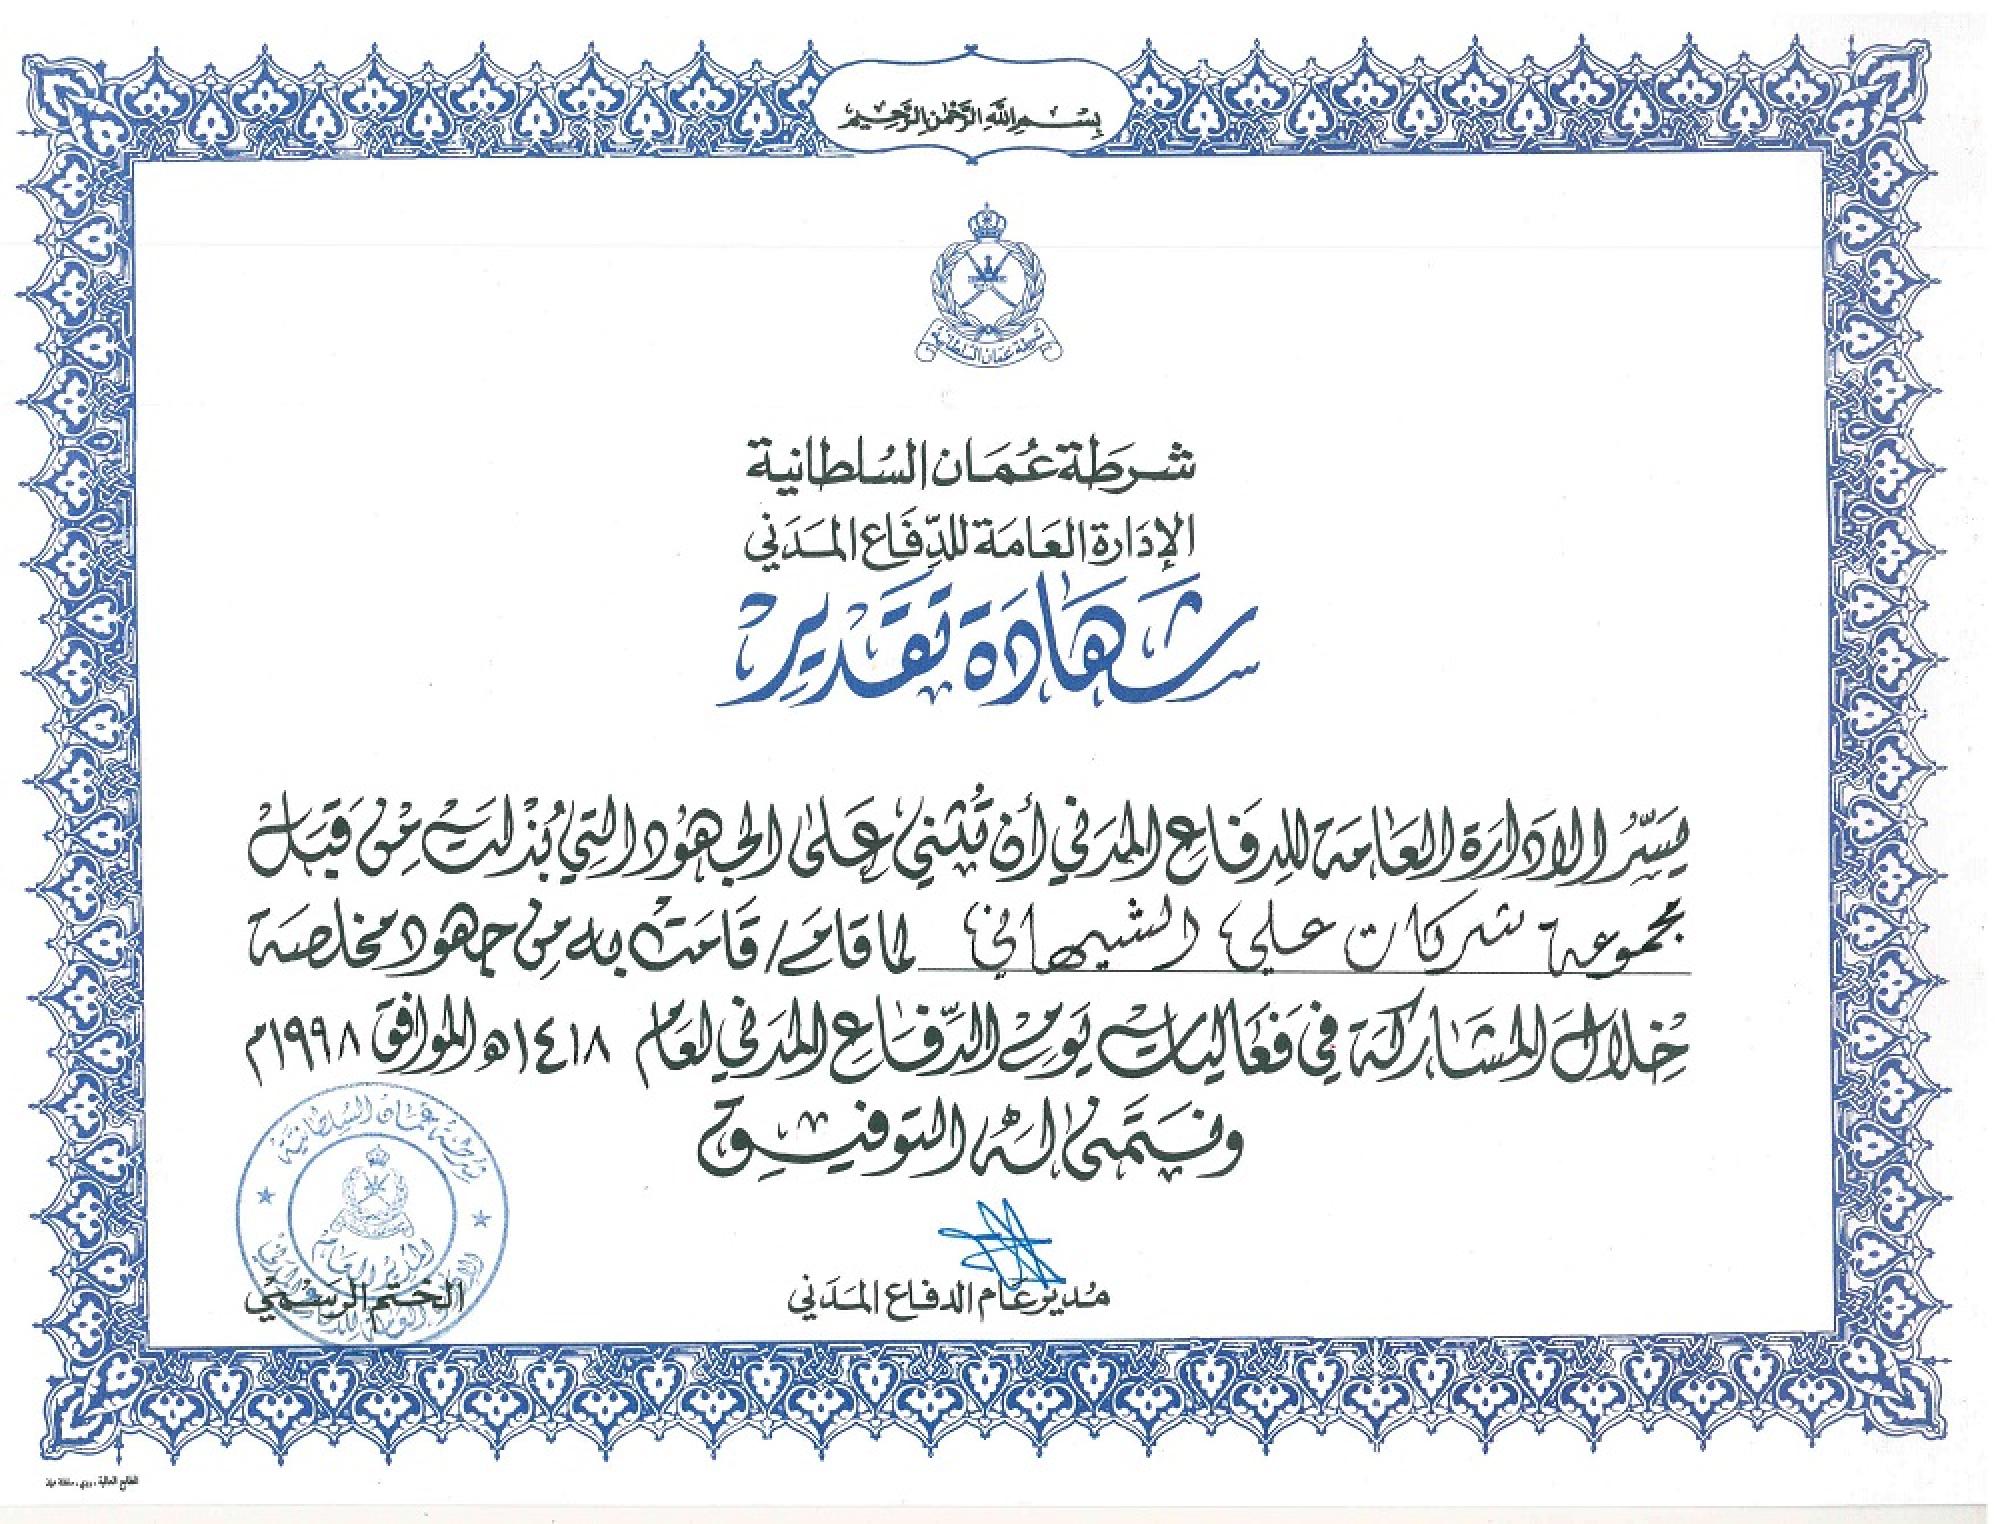 بسم الله الرحمن الرحيم
شرطة عمان السلطانية
شرطة عُمَان السُلطانية
الإدَارة العَامَة للدِّفَاع المَدَني
شَهَادَة تقَدير
يسّر الادارة العامة للدفاع المدني أن تُثني على الجهود التي بُذلت من قبل
مجموعة شركات علي الشيهاني لما قام/ قامت به من جهود مخلصة
خلال المشاركة في فعاليات يوم الدّفاع المدني لعام ١٤١٨ه الموافق ١٩٩٨م
ونتمنى له التوفيق
شرطة عمان السلطانية
المدير العام
الادارة العامة للدفاع المدني
مُدير عَام الدفاع المَدَني
الختم الرسمي